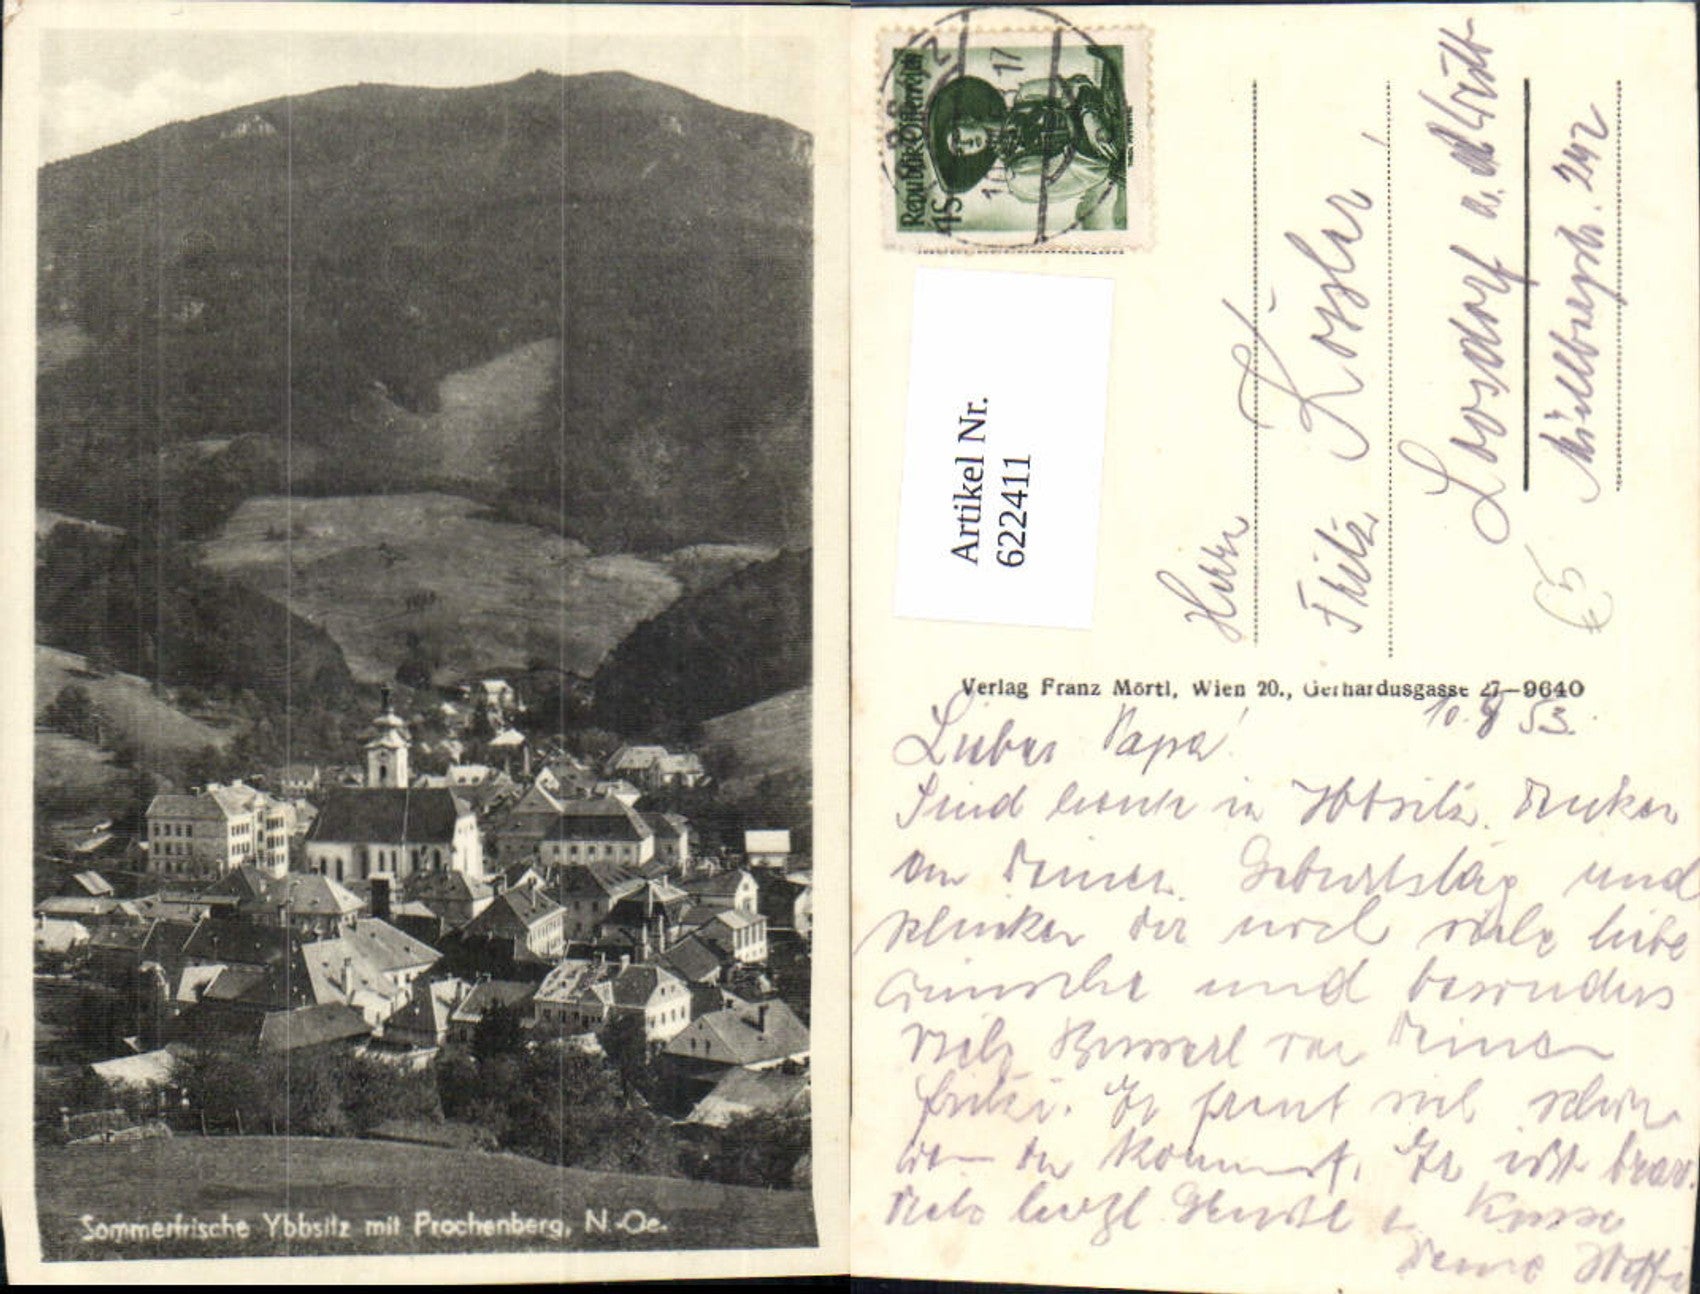 Sommerfrische Ybbsitz mit Prochenberg, N.-Oe.
Republik Österreich
1S
Artikel Nr.
622411
Herrn
Fritz Kösler
Loosdorf a. d. Westb
242
Verlag Franz Mörtl, Wien 20., Gerhardusgasse 27—9640
10. 8 53.
Lieber Papa!
Sind heute in Ybbsitz. Denken
an Deinen Geburtstag und
schicken dir noch viele liebe
Wünsche und besonders
viele Busserl von Deinem
Fritzi. Er freut sich schon
wenn du kommst. Er ißt brav.
Viele herzl Grüße u Küsse
Deine Steffi